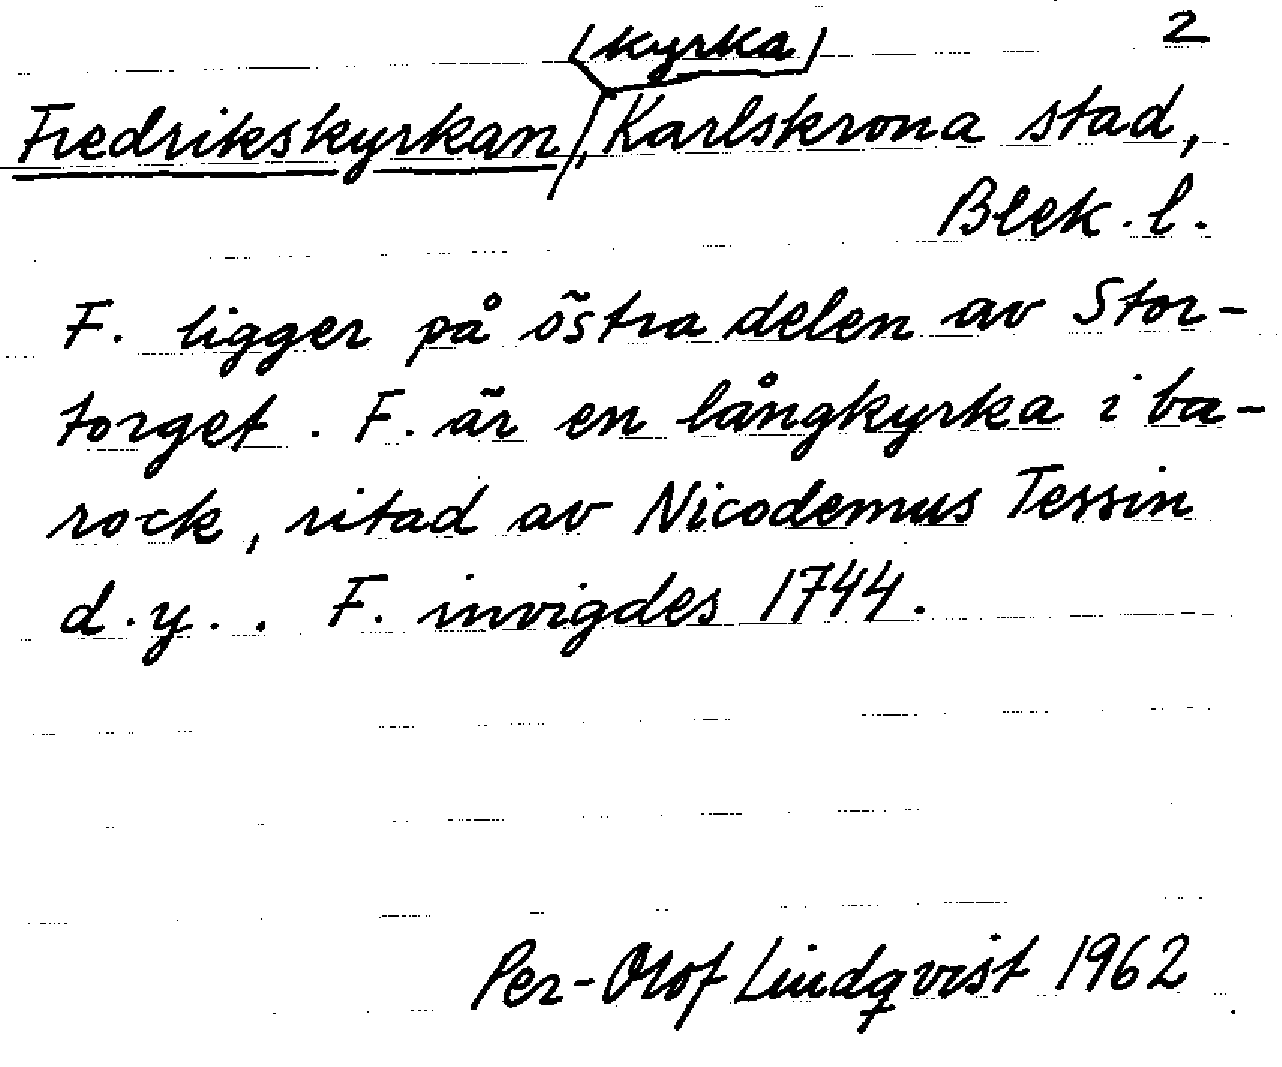 (kyrka) 2
Fredrikskyrkan, Karlskrona stad,
Blek. l.
F. ligger på östra delen av Stor-
torget. F. är en långkyrka i ba-
rock, ritad av Nicodemus Tessin
d.y.. F. invigdes 1744.
Per-Olof Lindqvist 1962